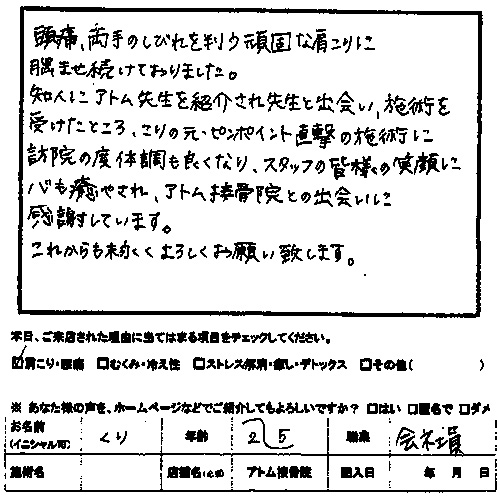 頭痛、両手のしびれを判う頑固な肩こりに
悩ませ続けておりました。
知人にアトム先生を紹介され先生と出会い、施術を
受けたところ、こりの元・ピンポイント直撃の施術に
訪院の度体調も良くなり、スタッフの皆様の笑顔に
心も癒やされ、アトム接骨院との出会いに
感謝しています。
これからも末永くよろしくお願い致します。
本日、ご来店された理由に当てはまる項目をチェックしてください。
☑肩こり・腰痛 □むくみ・冷え性 □ストレス解消・癒し・デトックス □その他( )
※ あなた様の声を、ホームページなどでご紹介してもよろしいですか？ □はい □匿名で □ダメ
お名前 くり 年齢 25 職業 会社員
(イニシャル可)
施術名 店舗名(必須) アトム接骨院 記入日 年 月 日